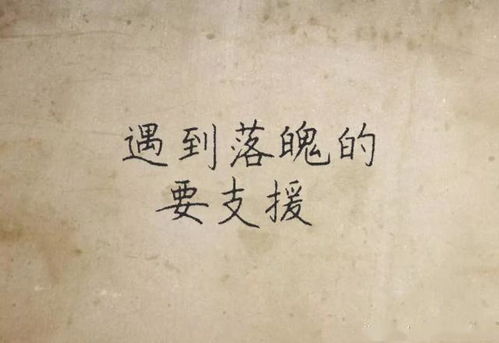 遇到落魄的
要支援